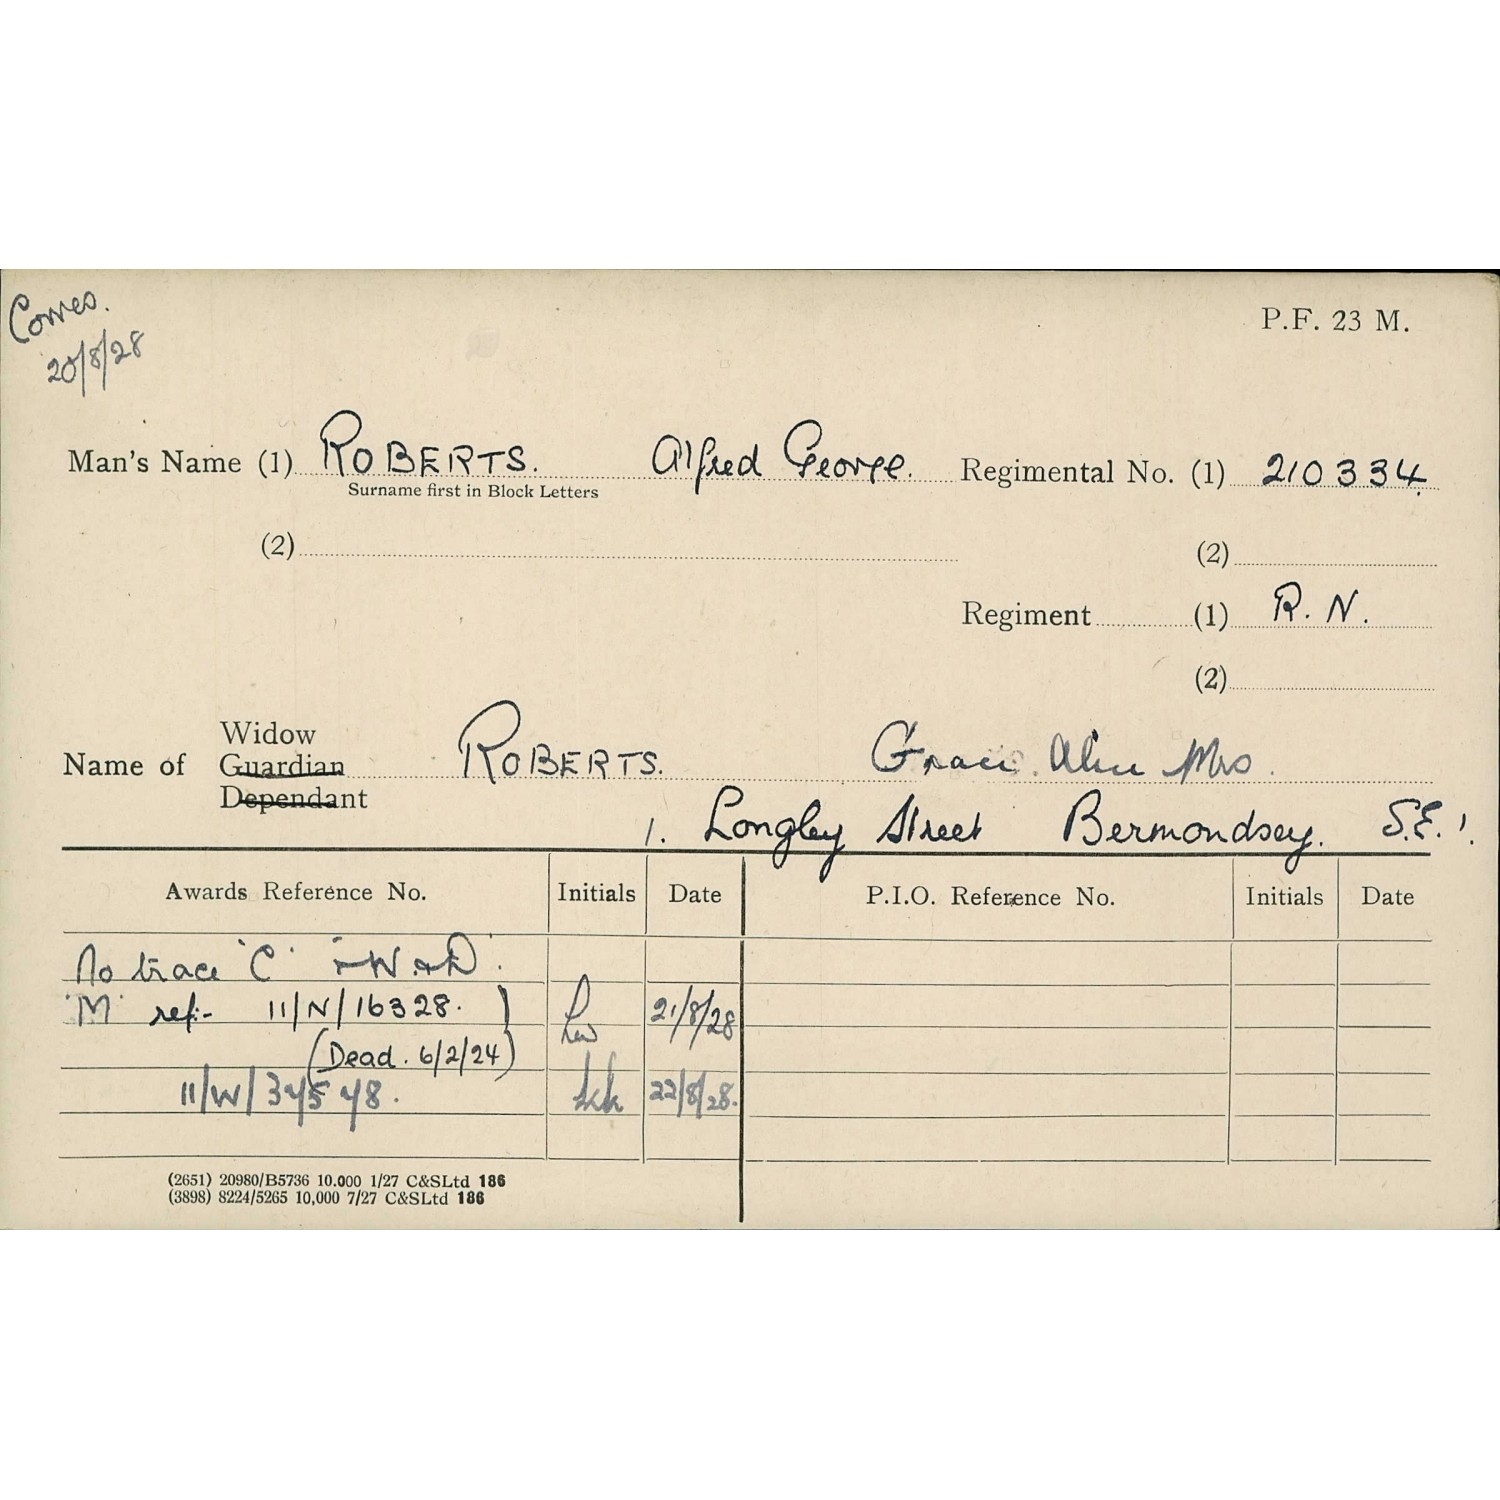 Corres.
20/8/28
P.F. 23 M.
Man's Name (1) ROBERTS. Alfred George. Regimental No. (1) 210334
Surname first in Block Letters
(2) (2)
Regiment (1) R.N.
(2)
Widow
Name of Guardian ROBERTS. Grace Alice Mrs.
Dependant
1. Longley Street Bermondsey. S.E.1.
Awards Reference No. Initials Date P.I.O. Reference No. Initials Date
No trace 'C' + W. & D.
'M' ref:- 11/N/16328. 21/8/28
(Dead. 6/2/24)
11/W/34548. 22/8/28.
(2651) 20980/B5736 10.000 1/27 C&SLtd 186
(3898) 8224/5265 10,000 7/27 C&SLtd 186